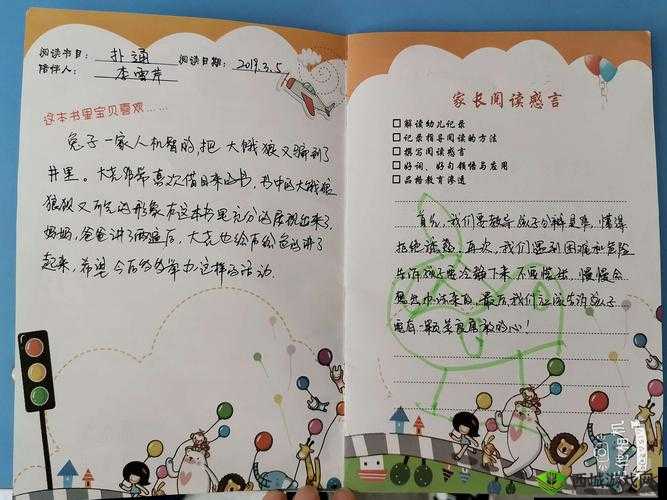 阅读书目：扑通
陪伴人：李雪芹
阅读日期：2019.3.5
这本书里宝贝喜欢……
兔子一家人机智的，把大饿狼又骗到了
井里。大尧非常喜欢借回来的书，书中的大饿狼
狼狈又可笑的形象在这本书里充分的展现出来了
妈妈，爸爸讲了两遍后，大尧也给爸爸讲了
起来，希望今后多多举办这样的活动
家长阅读感言
□解读幼儿记录
□记录指导阅读的方法
□撰写阅读感言
□好词、好句领悟与应用
□品格教育渗透
首先，我们要教导孩子分辨是非，懂得
拒绝诱惑，再次，我们遇到困难和危险
告诉孩子要冷静下来，不要慌张，慢慢会
想出办法来的，最后，我们应该告诉孩子
要有一颗勇敢的心！
西城游戏网